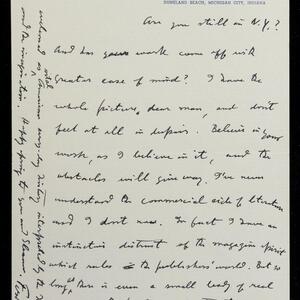 DUNELAND BEACH, MICHIGAN CITY, INDIANA
Are you still in N.Y.?
And has your work come off with
greater ease of mind? I have the
whole picture, dear man, and don't
feel at all in despair. Believe in your
work, as I believe in it, and the
obstacles will give way. I've never
understood the commercial side of literature
and I don't now. In fact I have an
instinctive distrust of the magazine spirit
which rules in the publishers' world. But so
long as there is even a small body of real
and the imagination. Happy